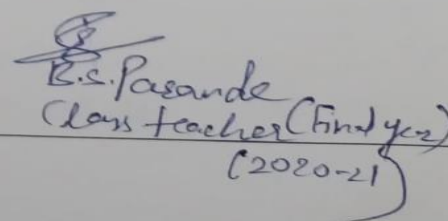 B.S. Pasande
Class teacher (Final year)
(2020-21)